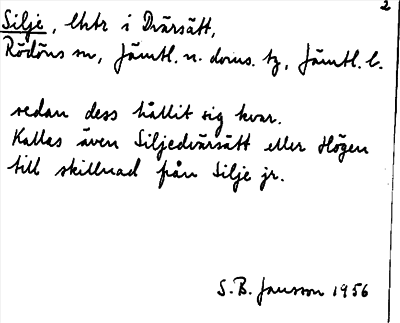 2
Silje, lktr i Dvärsätt,
Rödöns sn, Jämtl. n. doms. tg, Jämtl. l.
sedan dess hållit sig kvar.
Kallas även Siljedvärsätt eller Högen
till skillnad från Silje jr.
S.B. Jansson 1956